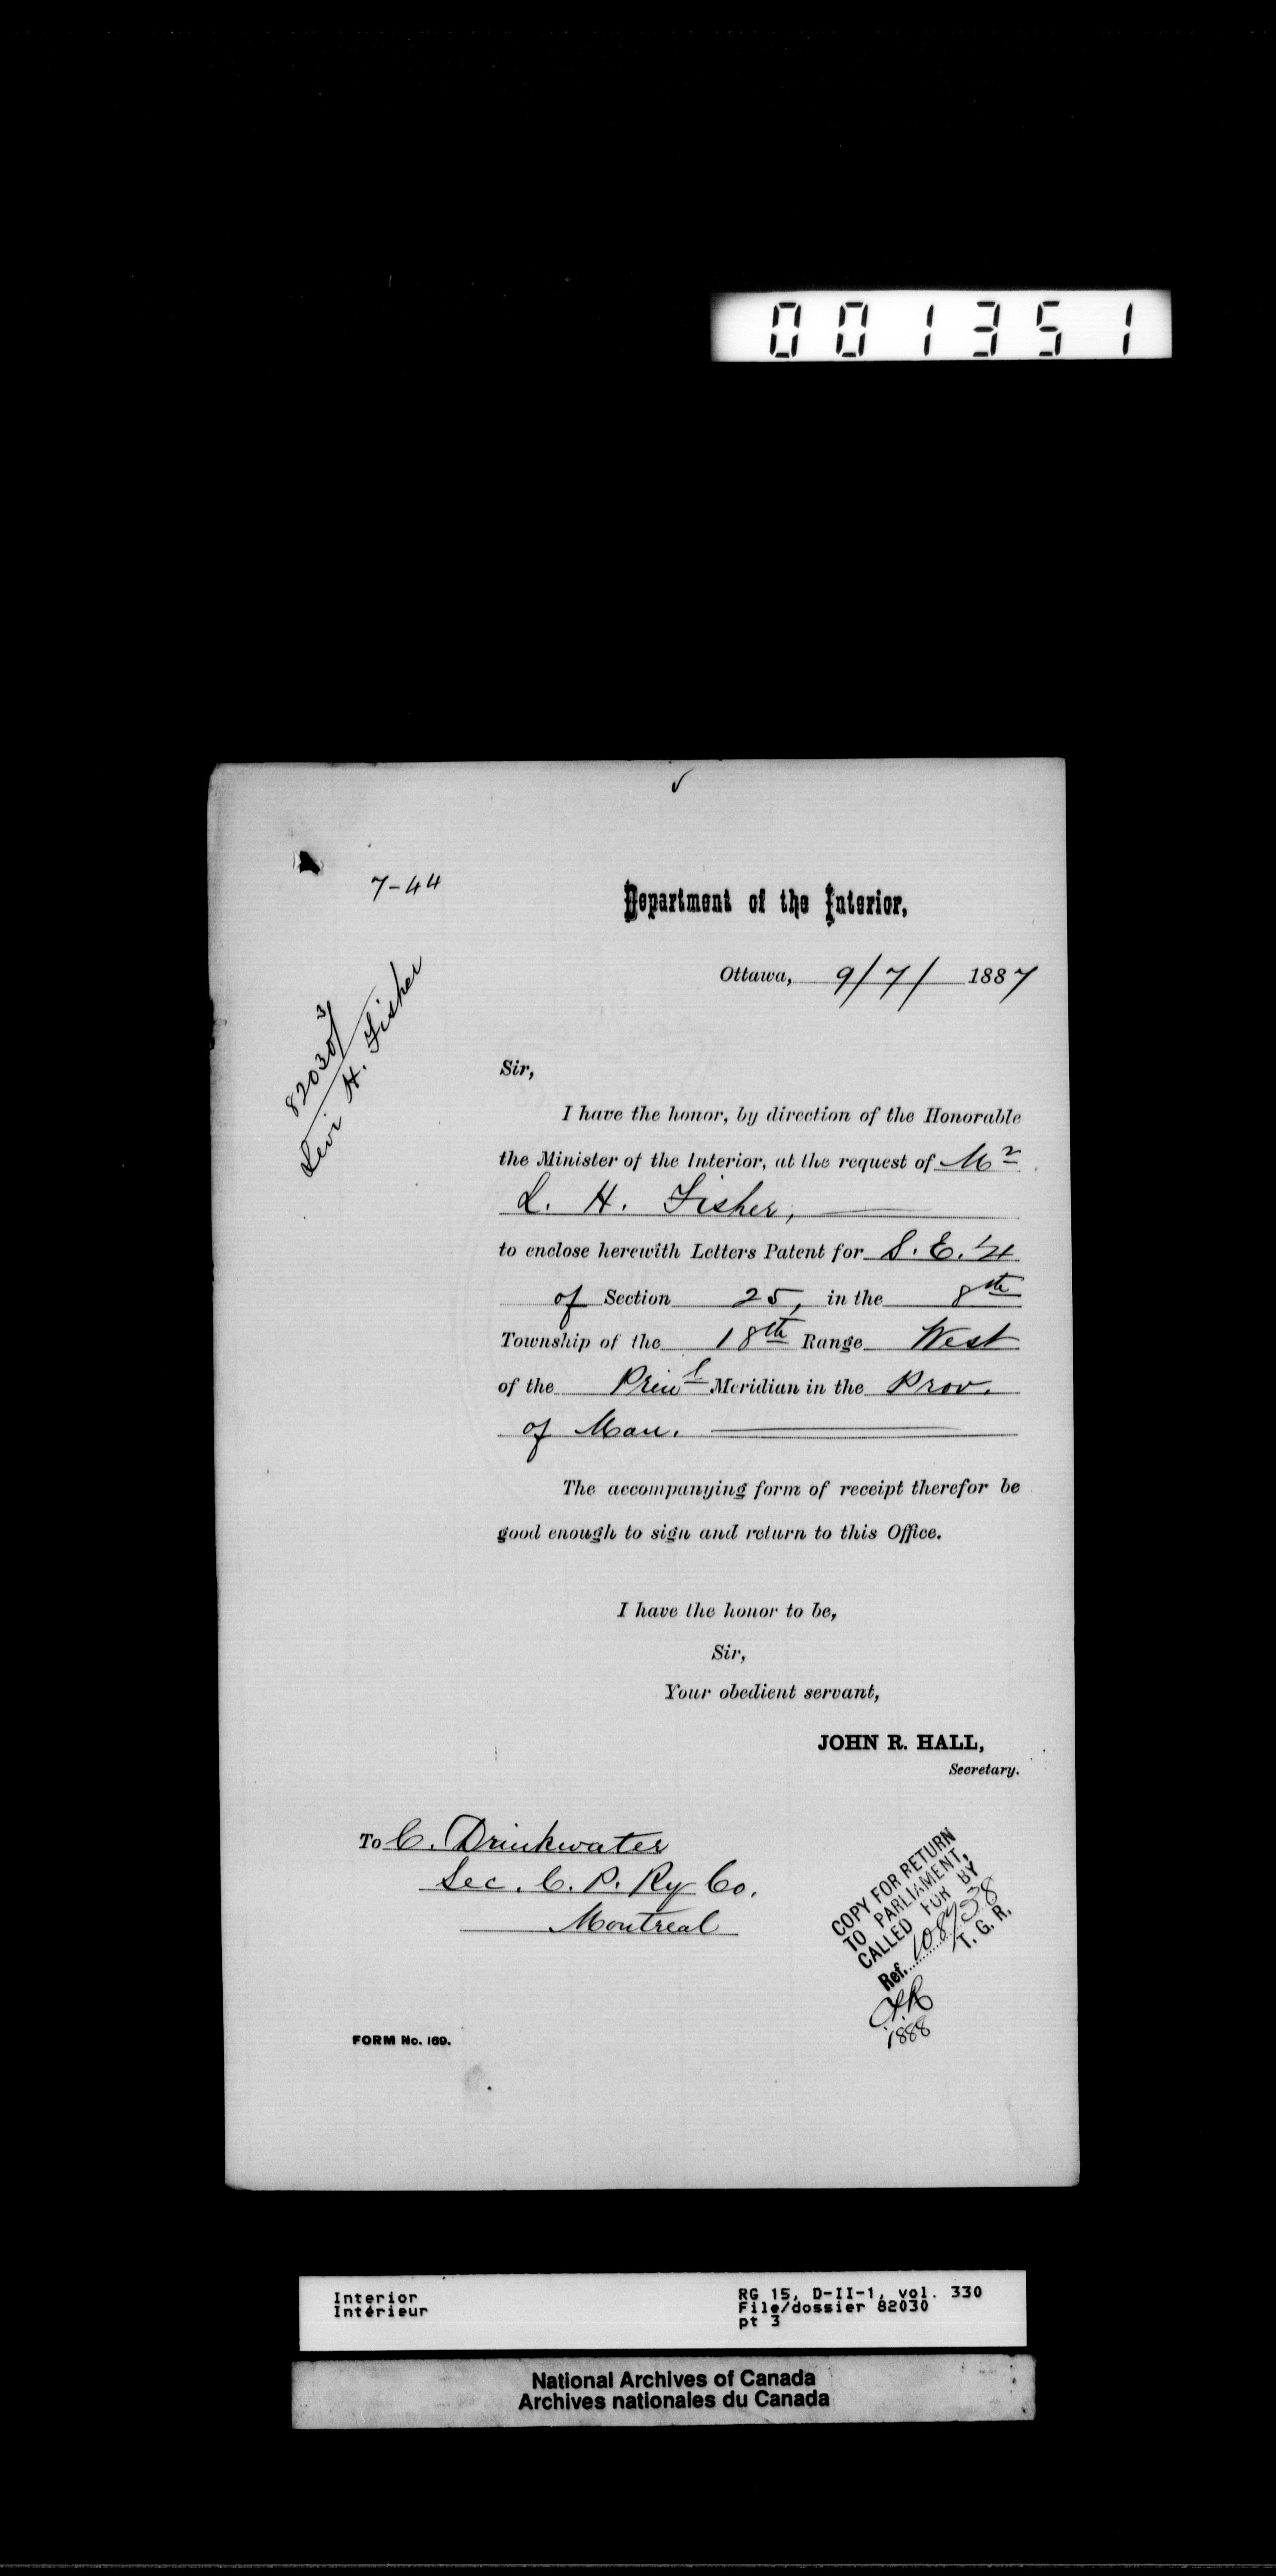 001351
7-44
Department of the Interior,
Ottawa, 9/7/ 1887
82030/3
Levi H. Fisher
Sir,
I have the honor, by direction of the Honorable
the Minister of the Interior, at the request of Mr
L. H. Fisher,
to enclose herewith Letters Patent for S. E. 1/4
of Section 25, in the 8th
Township of the 18th Range West
of the Prinl Meridian in the Prov.
of Man.
The accompanying form of receipt therefor be
good enough to sign and return to this Office.
I have the honor to be,
Sir,
Your obedient servant,
JOHN R. HALL,
Secretary.
To C. Drinkwater
Sec. C. P. Ry Co.
Montreal
COPY FOR RETURN
TO PARLIAMENT,
CALLED FOR BY
Ref. 108938
T. G. R.
1888
FORM No. 169.
Interior
Intérieur
RG 15, D-II-1, vol. 330
File/dossier 82030
pt 3
National Archives of Canada
Archives nationales du Canada